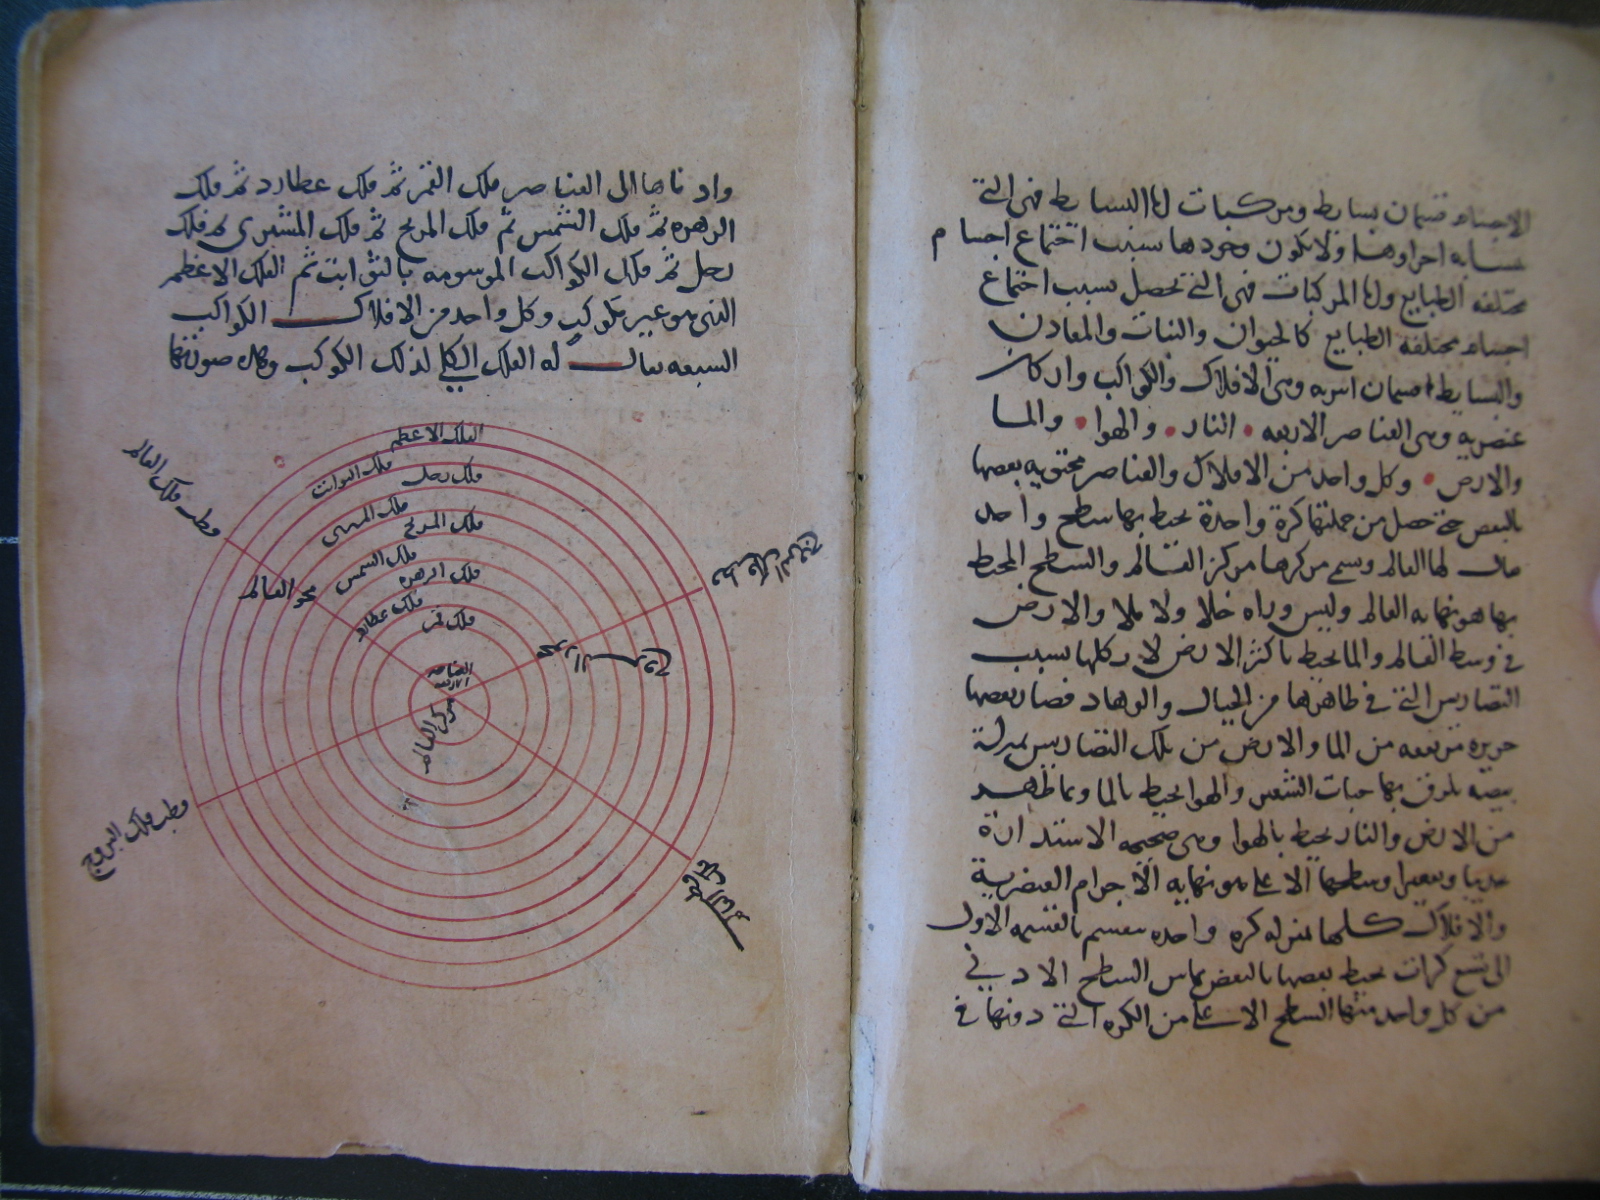 الاجسام قسمان بسايط ومركبات اما البسايط فهى التى
تشابه اجزاوها ولا يكون وجودها بسبب اجتماع اجسام
مختلفه الطبايع واما المركبات فهى التى تحصل بسبب اجتماع
اجسام مختلفه الطبايع كالحيوان والنبات والمعادن
والبسايط قسمان اثيريه وهى الافلاك والكواكب واركان
عنصريه وهى العناصر الاربعه النار والهوا والما
والارض وكل واحد من الافلاك والعناصر محتويه بعضها
بالبعض حتى حصل من جملتها كرة واحدة يحيط بها سطح واحد
يقال لها العالم ويسمى مركزها مركز العالم والسطح المحيط
بها هو نهايه العالم وليس وراه خلا ولا ملا والارض
فى وسط العالم والما يحيط باكثر الارض لا بكلها بسبب
التضاريس التى فى ظاهرها من الجبال والوهاد فصار بعضها
جزيره مرتفعه من الما والارض من تلك التضاريس بمنزلة
بيضه يلزق بها حبات الشعير والهوا يحيط بالما وما ظهر
من الارض والنار يحيط بالهوا وهى صحيحه الاستدارة
تحديبا وتقعيرا وسطحها الاعلى هو نهايه الاجرام العنصرية
والافلاك كلها بمنزله كره واحده ينقسم بالقسمه الاول
الى تسع كرات يحيط بعضها بالبعض يماس السطح الادنى
من كل واحد منها السطح الاعلى من الكره التى دونها فى
وادناها الى العناصر فلك القمر ثم فلك عطارد ثم فلك
الزهره ثم فلك الشمس ثم فلك المريخ ثم فلك المشترى ثم فلك
زحل ثم فلك الكواكب الموسومه بالثوابت ثم الفلك الاعظم
الذى هو غير مكوكب وكل واحد من الافلاك الكواكب
السبعه يقال له الفلك الكلى لذلك الكوكب وهذه صورتها
الفلك الاعظم
فلك الثوابت
فلك زحل
فلك المشترى
فلك المريخ
فلك الشمس
فلك الزهره
فلك عطارد
فلك قمر
العناصر الاربعه
مركز العالم
محور العالم
محور البروج
قطب فلك العالم
قطب فلك البروج
قطب فلك البروج
قطب فلك العالم